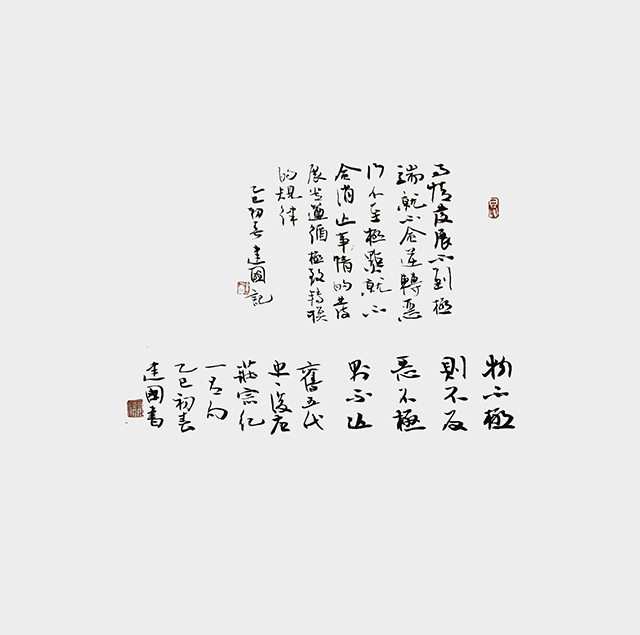 事情發展不到極
端就不会逆轉惡
行不至極點就不
会消止事情的發
展当遵循極致轉換
的規律
乙巳初春
建國記
物不極
則不反
惡不極
則不亡
舊五代
史、後唐
莊宗紀
一有句
乙巳初春
建國書